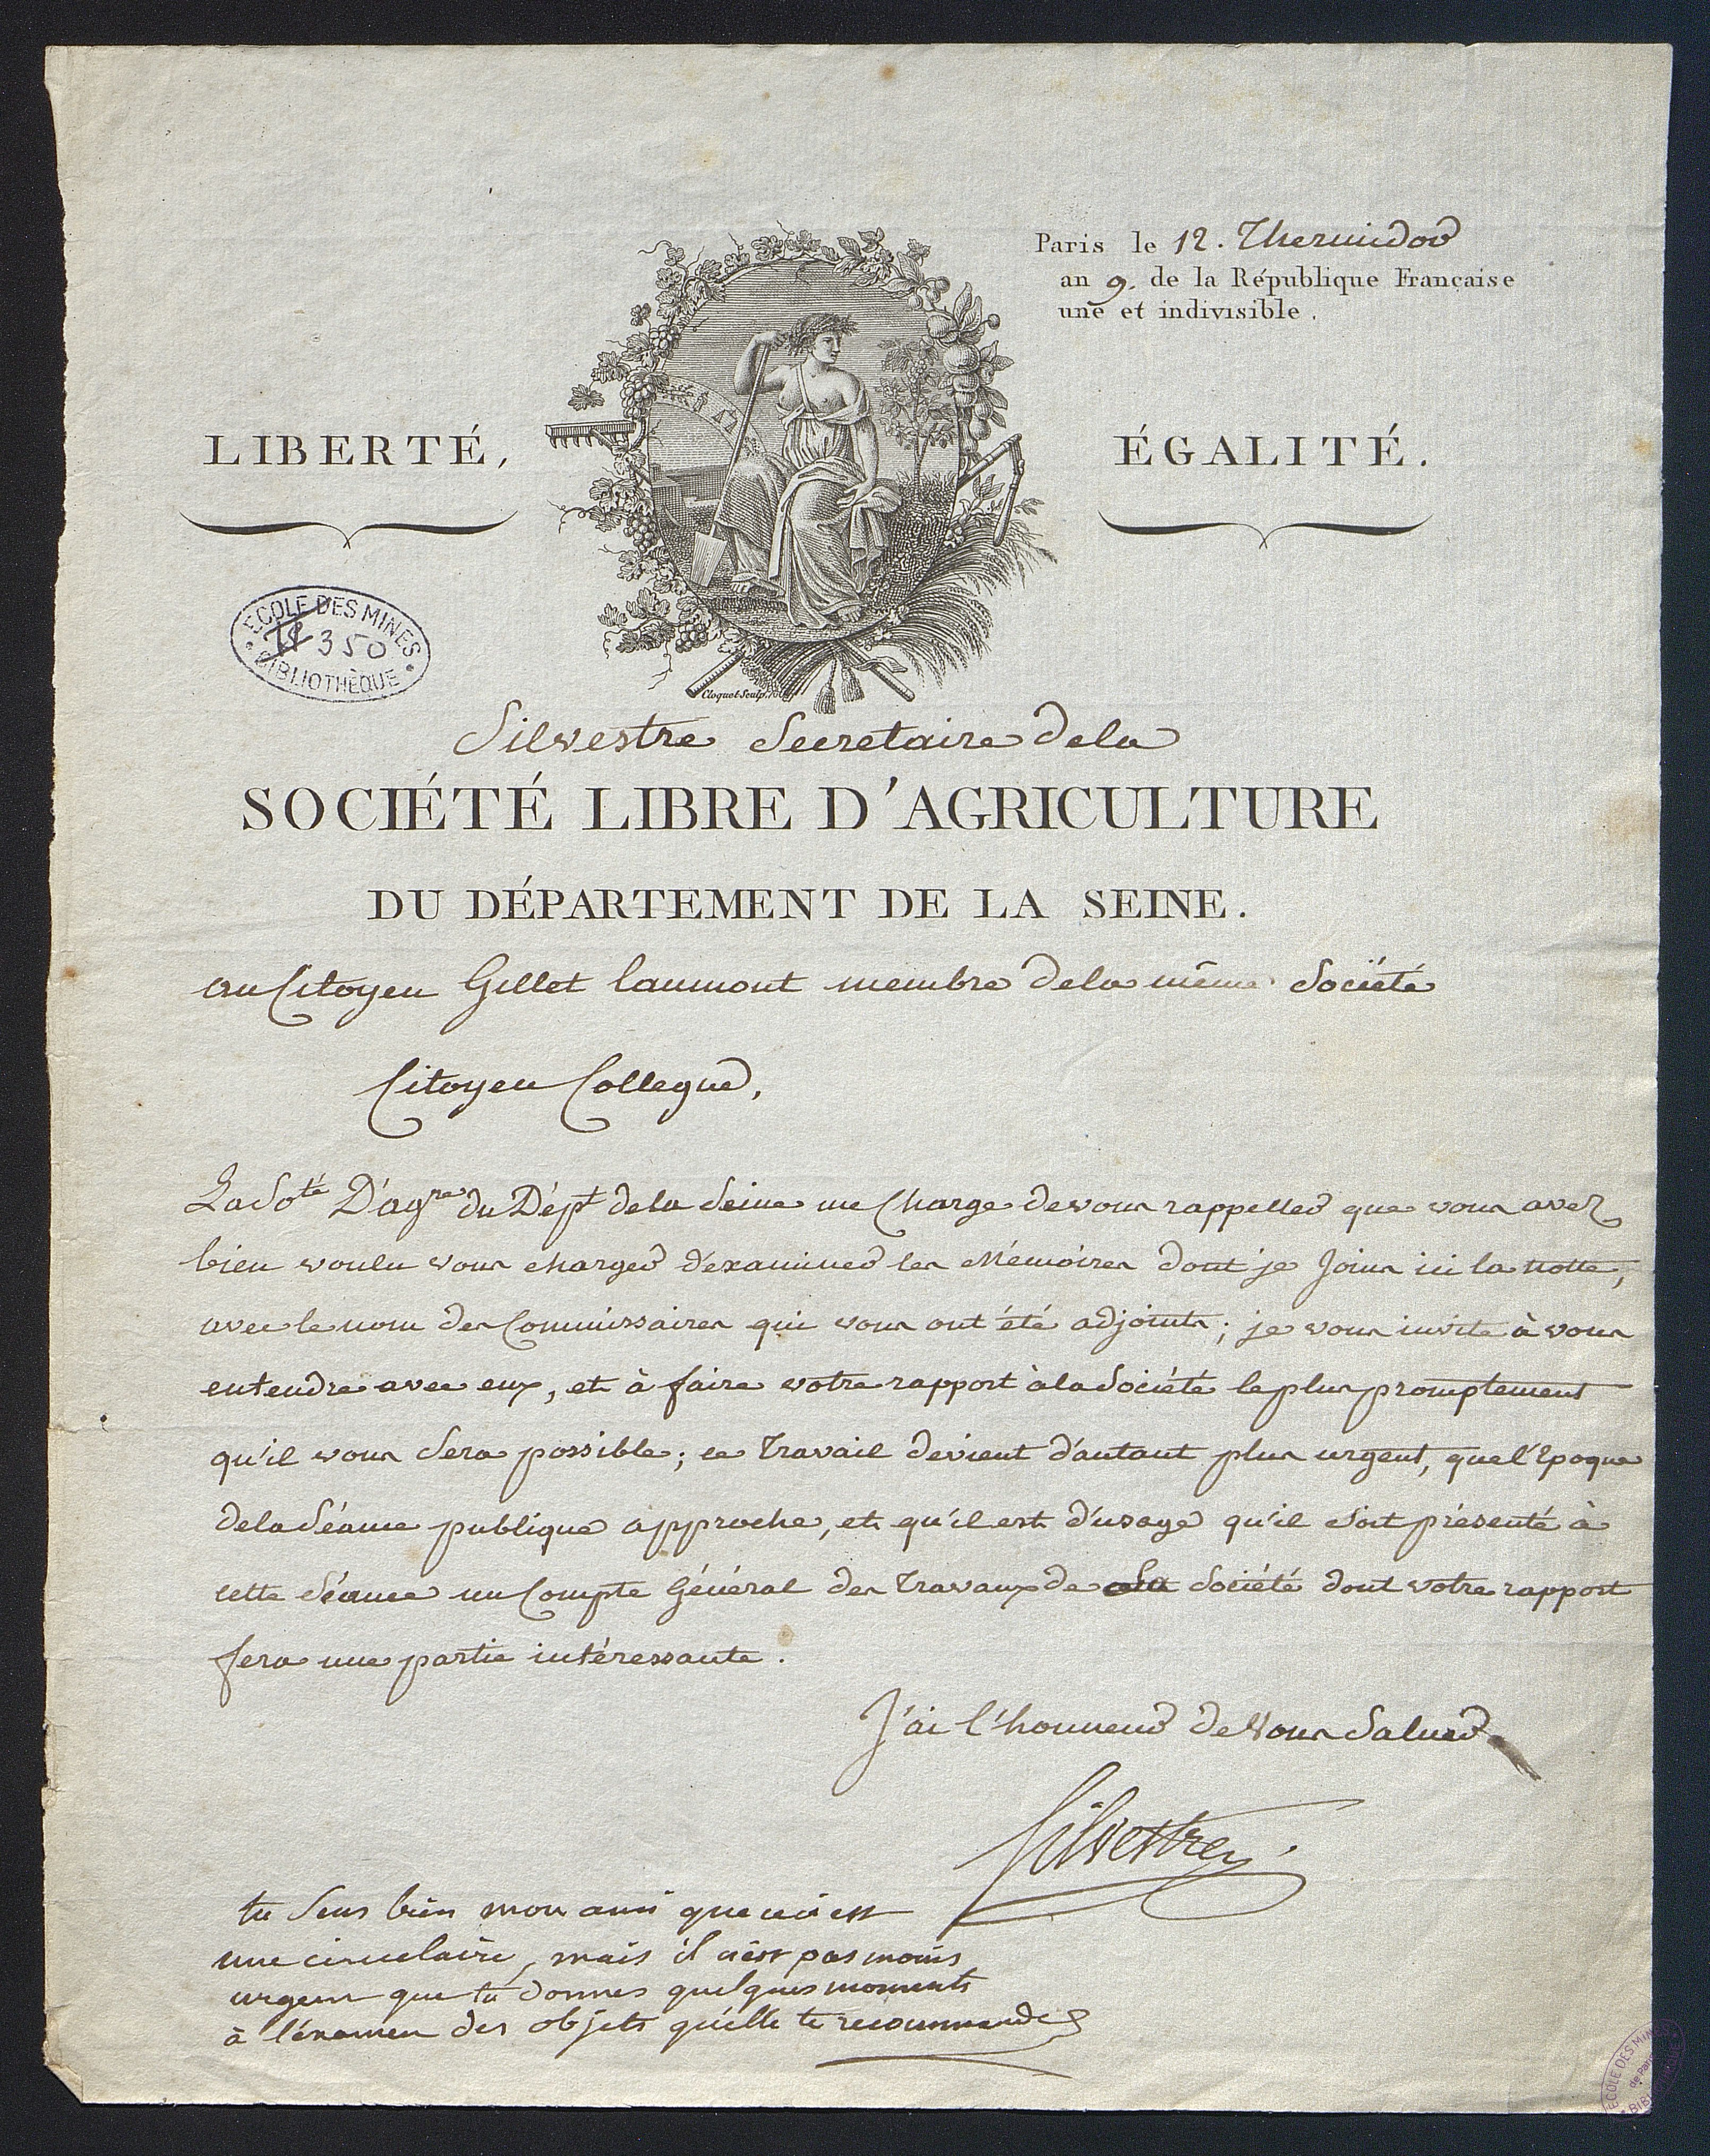 Paris le 12. Thermidor
an 9. de la République Française
une et indivisible.
LIBERTÉ,
ÉGALITÉ.
ECOLE DES MINES
350
BIBLIOTHÈQUE
Cloquet Sculp.
Silvestre Secretaire de la
SOCIÉTÉ LIBRE D'AGRICULTURE
DU DÉPARTEMENT DE LA SEINE.
au Citoyen Gillet laumont membre de la même Société
Citoyen Collegue,
La Soté D'agre du Dépt de la Seine me Charge de vous rappeller que vous avez
bien voulu vous charger d'examiner les Mémoires dont je Joins ici la notte,
avec le nom des Commissaires qui vous ont été adjoints; je vous invite à vous
entendre avec eux, et à faire votre rapport à la Société le plus promptement
qu'il vous Sera possible; ce Travail devient d'autant plus urgent, que l'Epoque
de la Séance publique approche, et qu'il est d'usage qu'il soit présenté à
cette Séance un Compte Général des Travaux de la Société dont votre rapport
fera une partie intéressante.
J'ai l'honneur de Vous Saluer.
Silvestre
tu Sens bien mon ami que ceci est
une circulaire, mais il n'est pas moins
urgent que tu donnes quelques moments
à l'examen des objets qu'elle te recommande
ECOLE DES MINES
de Paris
BIBLIOTHEQUE